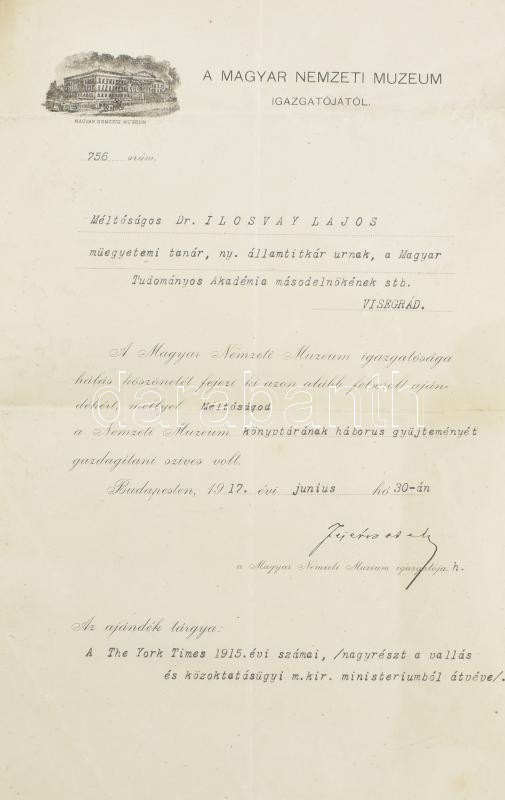 A MAGYAR NEMZETI MUZEUM
IGAZGATÓJÁTÓL.
MAGYAR NEMZETI MÚZEUM
756 szám.
Méltóságos Dr. ILOSVAY LAJOS
müegyetemi tanár, ny. államtitkár urnak, a Magyar
Tudományos Akadémia másodelnökének stb.
VISEGRÁD.
A Magyar Nemzeti Muzeum igazgatósága
hálás köszönetét fejezi ki azon alább felsorolt aján-
dékért, mellyel Méltóságod
a Nemzeti Muzeum könyvtárának háborus gyüjteményét
gazdagitani szives volt.
Budapesten, 1917. évi junius hó 30-án
a Magyar Nemzeti Muzeum igazgatója h.
Az ajándék tárgya:
A The York Times 1915.évi számai, /nagyrészt a vallás
és közoktatásügyi m.kir. ministeriumból átvéve/.
darabanth